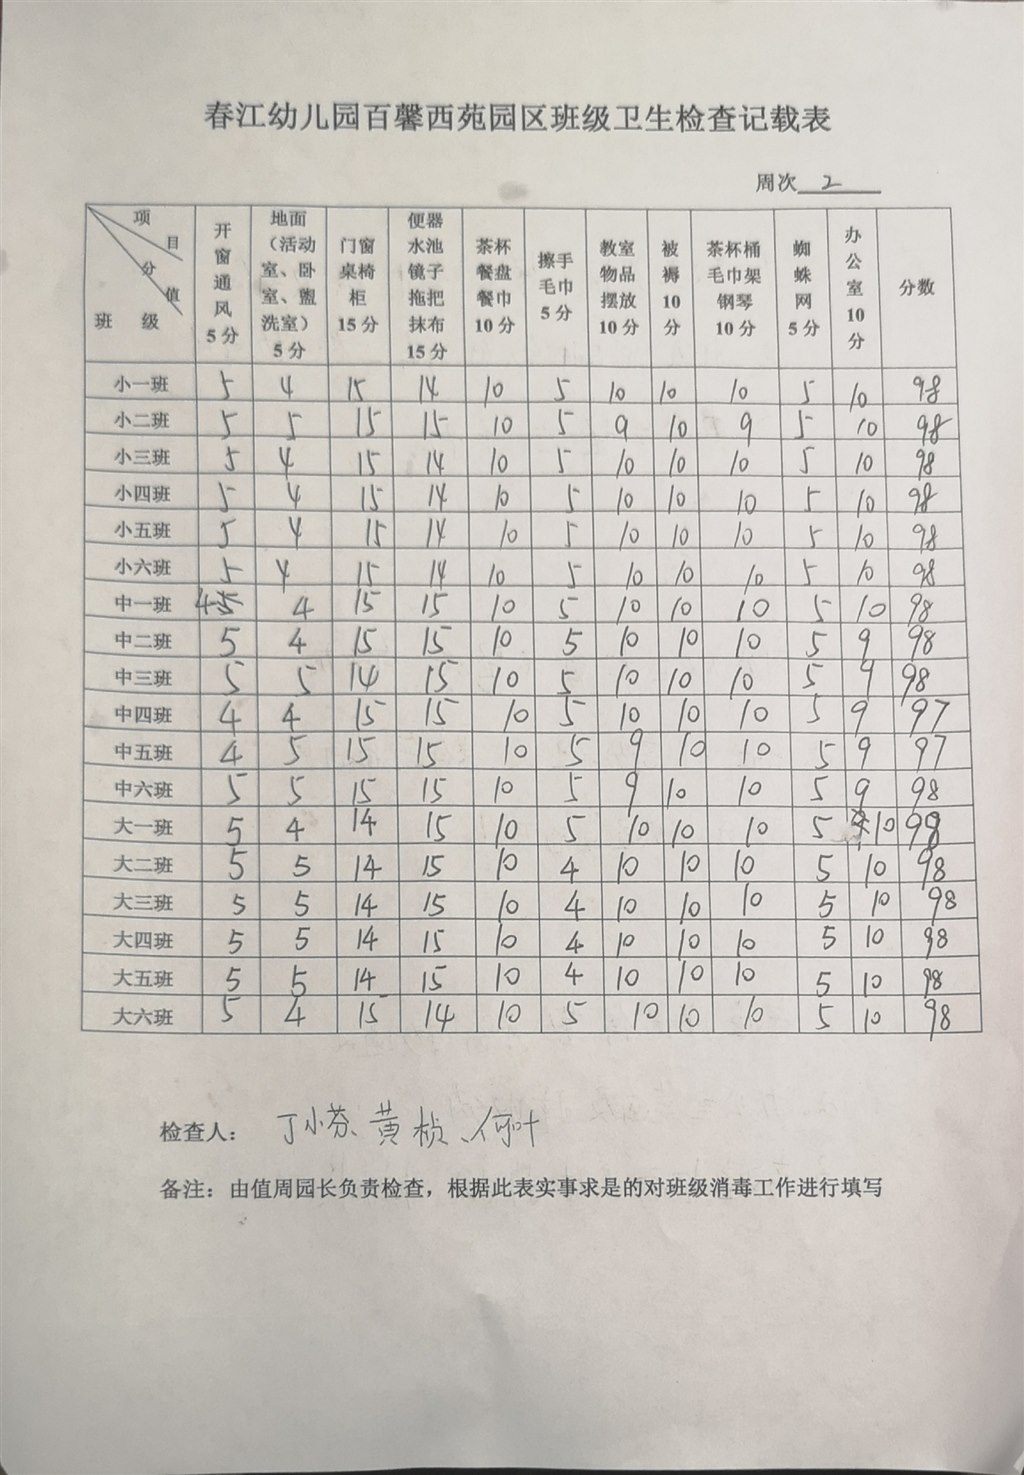 春江幼儿园百馨西苑园区班级卫生检查记载表
周次 2
项目 分值 班级 开窗通风5分 地面（活动室、卧室、盥洗室）5分 门窗桌椅柜15分 便器水池镜子拖把抹布15分 茶杯餐盘餐巾10分 擦手毛巾5分 教室物品摆放10分 被褥10分 茶杯桶毛巾架钢琴10分 蜘蛛网5分 办公室10分 分数
小一班 5 4 15 14 10 5 10 10 10 5 10 98
小二班 5 5 15 15 10 5 9 10 9 5 10 98
小三班 5 4 15 14 10 5 10 10 10 5 10 98
小四班 5 4 15 14 10 5 10 10 10 5 10 98
小五班 5 4 15 14 10 5 10 10 10 5 10 98
小六班 5 4 15 14 10 5 10 10 10 5 10 98
中一班 4 5 4 15 15 10 5 10 10 10 5 10 98
中二班 5 4 15 15 10 5 10 10 10 5 9 98
中三班 5 5 14 15 10 5 10 10 10 5 9 98
中四班 4 4 15 15 10 5 10 10 10 5 9 97
中五班 4 5 15 15 10 5 9 10 10 5 9 97
中六班 5 5 15 15 10 5 9 10 10 5 9 98
大一班 5 4 14 15 10 5 10 10 10 5 10 98
大二班 5 5 14 15 10 4 10 10 10 5 10 98
大三班 5 5 14 15 10 4 10 10 10 5 10 98
大四班 5 5 14 15 10 4 10 10 10 5 10 98
大五班 5 5 14 15 10 4 10 10 10 5 10 98
大六班 5 4 15 14 10 5 10 10 10 5 10 98
检查人： 丁小芬、黄桢、何叶
备注：由值周园长负责检查，根据此表实事求是的对班级消毒工作进行填写